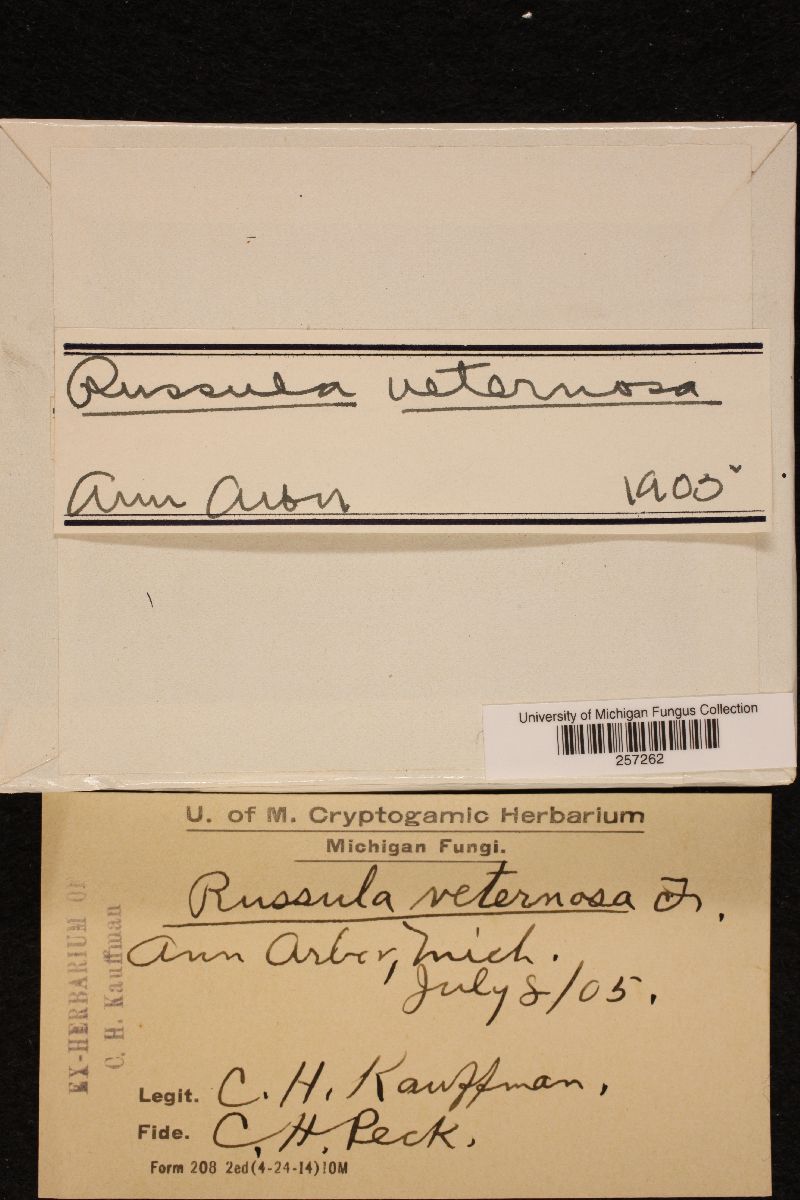 Russula veternosa
Ann Arbor 1905
University of Michigan Fungus Collection
257262
U. of M. Cryptogamic Herbarium
Michigan Fungi.
Russula veternosa Fr.
Ann Arbor, Mich.
July 8/05.
EX-HERBARIUM OF
C. H. Kauffman
Legit. C. H. Kauffman.
Fide. C. H. Peck.
Form 208 2ed(4-24-14)10M